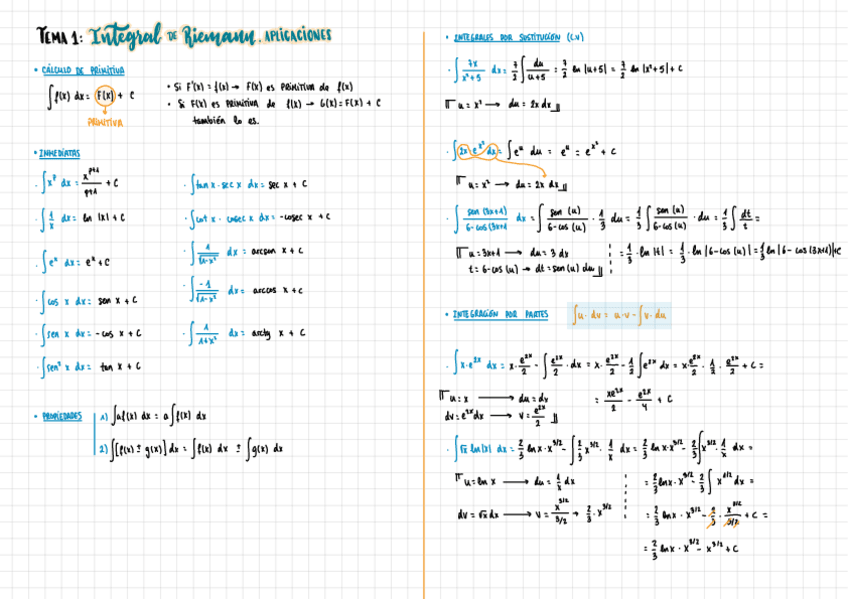 TEMA 1: Integral DE Riemann. APLICACIONES
• CÁLCULO DE PRIMITIVA
∫f(x) dx = F(x) + C
PRIMITIVA
• Si F'(x) = f(x) → F(x) es PRIMITIVA de f(x)
• Si F(x) es PRIMITIVA de f(x) → G(x) = F(x) + C
también lo es.
• INMEDIATAS
· ∫x^p dx = x^(p+1)/(p+1) + C
· ∫1/x dx = ln |x| + C
· ∫e^x dx = e^x + C
· ∫cos x dx = sen x + C
· ∫sen x dx = - cos x + C
· ∫sen² x dx = tan x + C
· ∫tan x · sec x dx = sec x + C
· ∫cot x · cosec x dx = -cosec x + C
· ∫1/√(1-x²) dx = arcsen x + C
· ∫-1/√(1-x²) dx = arccos x + C
· ∫1/(1+x²) dx = arctg x + C
• PROPIEDADES
1) ∫af(x) dx = a∫f(x) dx
2) ∫[f(x) ± g(x)] dx = ∫f(x) dx ± ∫g(x) dx
• INTEGRALES POR SUSTITUCIÓN (CV)
· ∫7x/(x²+5) dx = 7/2 ∫du/(u+5) = 7/2 ln |u+5| = 7/2 ln |x²+5| + C
u = x² → du = 2x dx
· ∫2x e^(x²) dx = ∫e^u du = e^u = e^(x²) + C
u = x² → du = 2x dx
· ∫sen (3x+1)/(6-cos (3x+1) dx = ∫sen (u)/(6-cos (u)) · 1/3 du = 1/3 ∫sen (u)/(6-cos (u)) · du = 1/3 ∫dt/t =
u = 3x+1 → du = 3 dx
t = 6-cos (u) → dt = sen (u) du
= 1/3 · ln |t| = 1/3 · ln |6-cos (u)| = 1/3 ln |6-cos (3x+1)| + C
• INTEGRACIÓN POR PARTES
∫u · dv = u·v - ∫v · du
· ∫x·e^(2x) dx = x·e^(2x)/2 - ∫e^(2x)/2 · dx = x·e^(2x)/2 - 1/2 ∫e^(2x) dx = x·e^(2x)/2 · 1/2 · e^(2x)/2 + C =
u = x → du = dx
dv = e^(2x) dx → v = e^(2x)/2
= xe^(2x)/2 - e^(2x)/4 + C
· ∫√x ln|x| dx = 2/3 ln x · x^(3/2) - ∫2/3 x^(3/2) · 1/x dx = 2/3 ln x · x^(3/2) - 2/3 ∫x^(3/2) · 1/x dx =
u = ln x → du = 1/x dx
dv = √x dx → v = x^(3/2)/(3/2) → 2/3 · x^(3/2)
= 2/3 ln x · x^(3/2) - 2/3 ∫ x^(1/2) dx =
= 2/3 ln x · x^(3/2) - 2/3 · x^(3/2)/(3/2) + C =
= 2/3 ln x · x^(3/2) - x^(3/2) + C